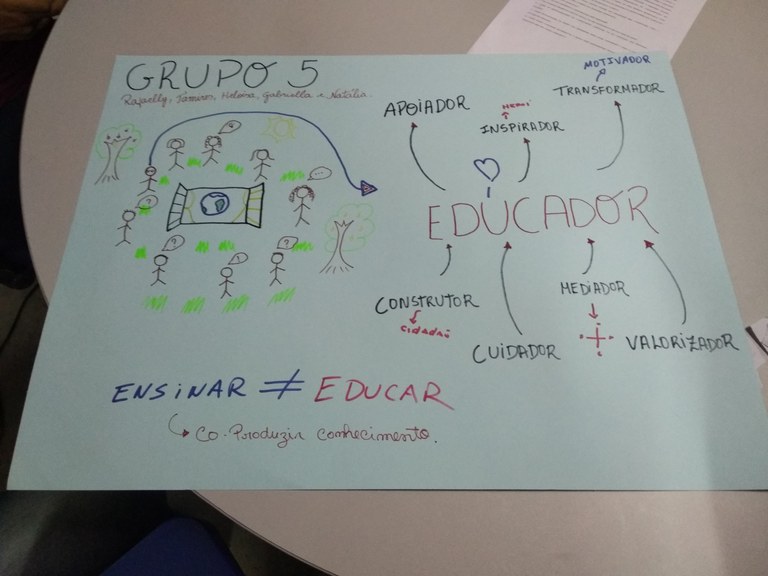 GRUPO 5
Rafaelly, Tamires, Heloísa, Gabriella e Natália.
MOTIVADOR
TRANSFORMADOR
APOIADOR
INSPIRADOR
EDUCADOR
CONSTRUTOR
CIDADÃO
MEDIADOR
CUIDADOR
VALORIZADOR
ENSINAR ≠ EDUCAR
CO-Produzir conhecimento.